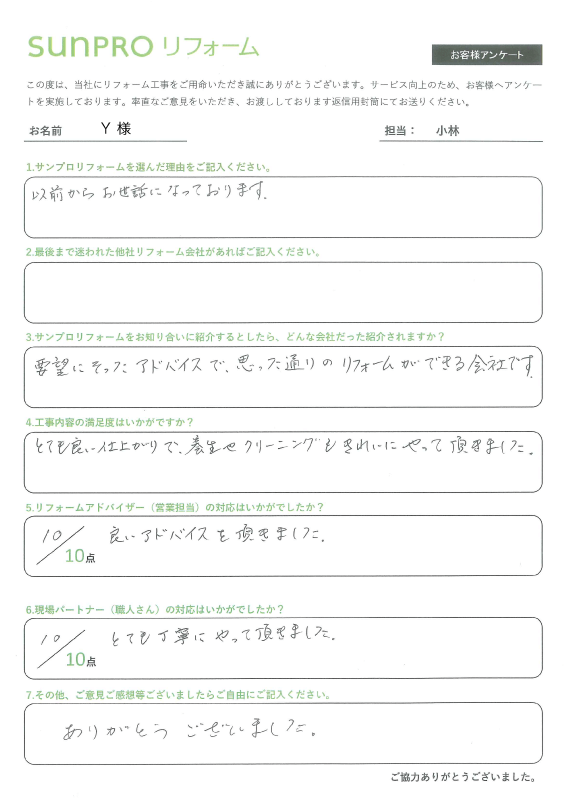 SUNPRO リフォーム
お客様アンケート
この度は、当社にリフォーム工事をご用命いただき誠にありがとうございます。サービス向上のため、お客様へアンケー
トを実施しております。率直なご意見をいただき、お渡ししております返信用封筒にてお送りください。
お名前 Y 様 担当： 小林
1.サンプロリフォームを選んだ理由をご記入ください。
以前からお世話になっております。
2.最後まで迷われた他社リフォーム会社があればご記入ください。
3.サンプロリフォームをお知り合いに紹介するとしたら、どんな会社だった紹介されますか？
要望にそったアドバイスで、思った通りのリフォームができる会社です。
4.工事内容の満足度はいかがですか？
とても良い仕上がりで、養生やクリーニングもきれいにやって頂きました。
5.リフォームアドバイザー（営業担当）の対応はいかがでしたか？
10/10点 良いアドバイスを頂きました。
6.現場パートナー（職人さん）の対応はいかがでしたか？
10/10点 とても丁寧にやって頂きました。
7.その他、ご意見ご感想等ございましたらご自由にご記入ください。
ありがとうございました。
ご協力ありがとうございました。